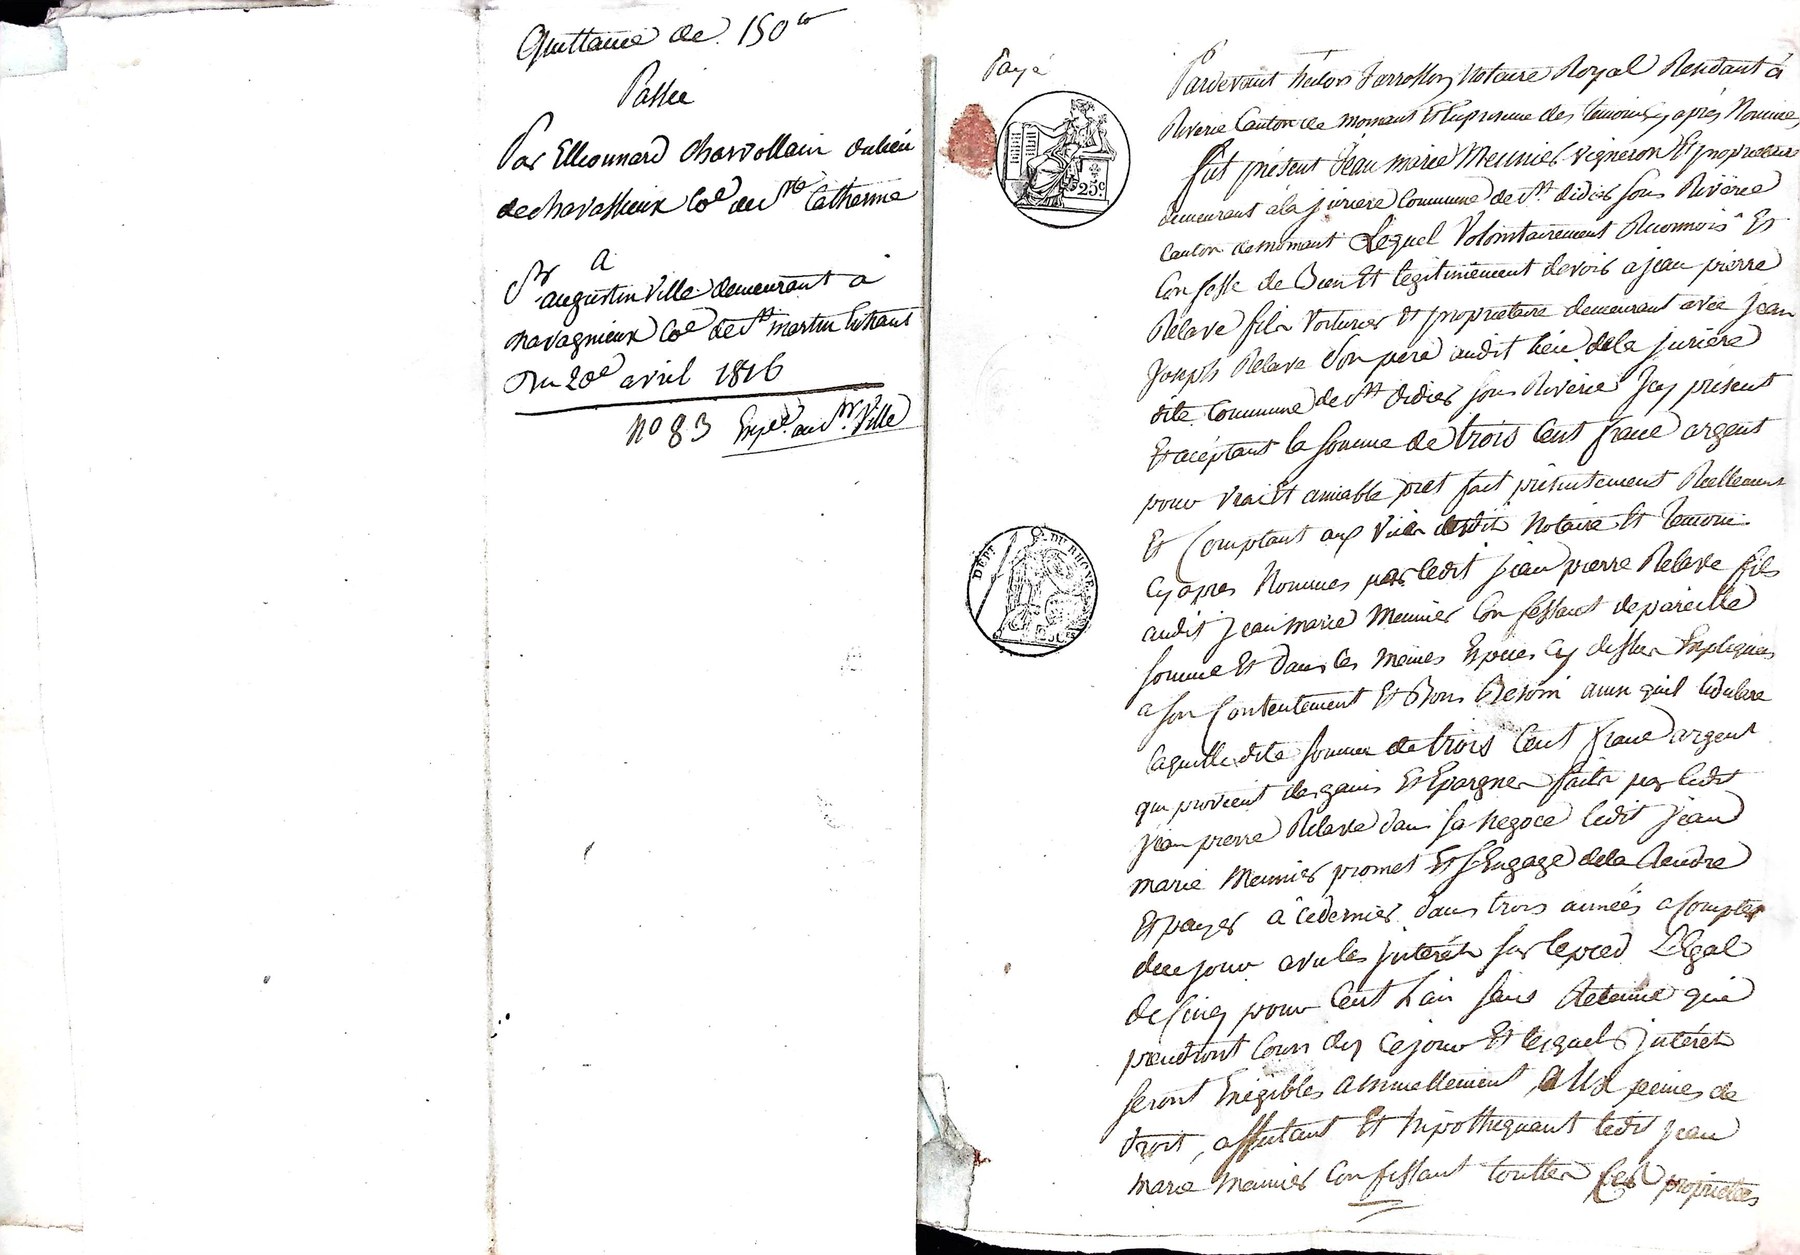 Quittance de 150 fr
Passée
Par Elleonnard Charvollain du lieu
de chavassieux Coe de Ste Catherine
a
Sr augustin Ville demeurant à
chavagnieux Coe de St martin
Du 20e avril 1816
No 83 Expée au Sr Ville
Payé
Pardevant notaire Royal Residant à
Riverie Canton de mornant Et En presence des temoins cy après Nommés
fut présent Jean marie Meunier vigneron Et proprietaire
demeurant à la jurière Commune de St didier sous Riverie
Canton de mornant Lequel Volontairement Reconnois Et
Confesse de Bien Et legitimement devoir a jean pierre
Relave fils Voiturier Et proprietaire demeurant avec jean
Joseph Relave son pere audit lieu de la jurière
dite Commune de St didier sous Riverie Icy présent
Et acéptant la somme de trois Cent franc argent
pour vrai Et amiable prêt fait présentement Réellement
Et Comptant aux vües dudit Notaire Et temoins
Cy apres Nommés par ledit jean pierre Relave fils
audit jean marie Meunier Confessant de pareille
somme Et dans les memes Especes Cy dessus Expliquées
a son Contentement Et Bon Besoin ainsi quil le déclare
laquelle dite somme de trois Cent franc argent
qui provient des gains Et Epargnes faits par ledit
jean pierre Relave dans sa negoce ledit jean
marie Meunier promet Et S'Engage de la Rendre
Et payer à ce dernier dans trois années a Compter
de ce jour avec les intérêts sur le pied Légal
de Cinq pour Cent L'an sans Retenue qui
prendront Cours dès ce jour Et lesquels intérêts
seront Exigibles annuellement aux peines de
droit, affectant Et hipothequant ledit jean
marie Meunier Confessant touttes ses proprietées
25 c
DÉPT DU RHONE